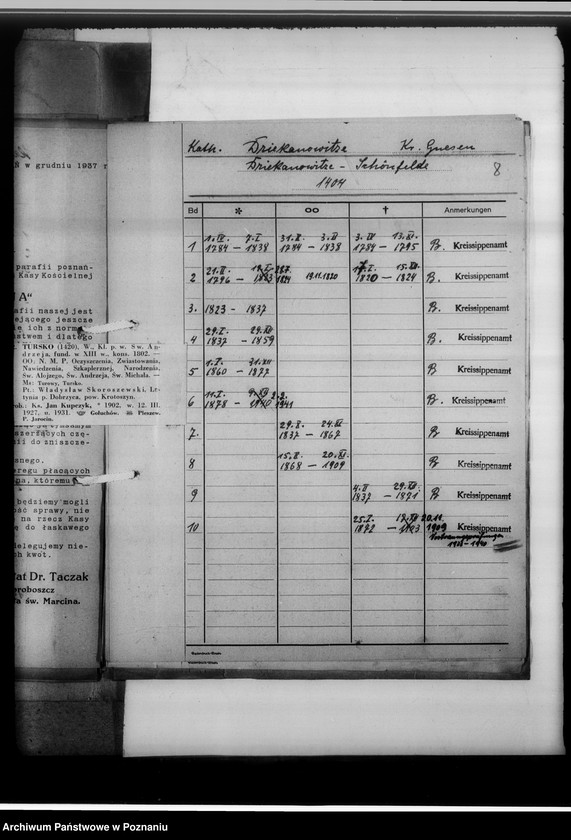 8 w grudniu 1937 r
parafii poznań-
Kasy Kościelnej
A"
afii naszej jest
ejącego jeszcze
ie ich z norma
stwem i dlatego
TURSKO (1420), W., Kl. p. w. Św. An-
drzeja, fund. w XIII w., kons. 1802. —
OO: N. M. P. Oczyszczenia, Zwiastowania,
Nawiedzenia, Szkaplerznej, Narodzenia,
Św. Alojzego, Św. Andrzeja, Św. Michała. —
Ms: Turowy, Tursko.
Pt.: Władysław Skoroszewski, Le-
tynia p. Dobrzyca, pow. Krotoszyn.
Ks. Jan Kupczyk, * 1902, w. 12. III.
1927, u. 1931. Gołuchów. Pleszew.
P. Jarocin.
szerfących czę-
i do zniszcze-
anego.
eregu płacących
na, któremu
będziemy mogli
ać sprawy, nie
na rzecz Kasy
do łaskawego
elegujemy nie-
h kwot.
at Dr. Taczak
proboszcz
a św. Marcina.
Kath. Dziekanowitze Kr. Gnesen
Dziekanowitze - Schönfelde 8
1404
Bd * oo † Anmerkungen
1. IV. 7. I 31. II. 3. II 3. IV 13. XI.
1 1784 — 1838 1784 — 1838 1784 — 1795 B. Kreissippenamt
21. II. 15. XII.
2 1796 — 1823 1824 19.11.1820 1820 — 1824 B. Kreissippenamt
3. 1823 — 1837 B. Kreissippenamt
29. I. 29. XII
4 1837 — 1859 B. Kreissippenamt
1. I. 31. XII
5 1860 — 1877 B Kreissippenamt
11. I. 2.2.
6 1878 — 1940 1941 B. Kreissippenamt
29. I. 24. XI
7. 1837 — 1867 B Kreissippenamt
15. II. 20. XI.
8 1868 — 1909 B Kreissippenamt
4. II 29. XII.
9 1837 — 1871 B Kreissippenamt
25. I. 20.11.
10 1872 — 1909 Kreissippenamt
1938 - 1940
Archiwum Państwowe w Poznaniu